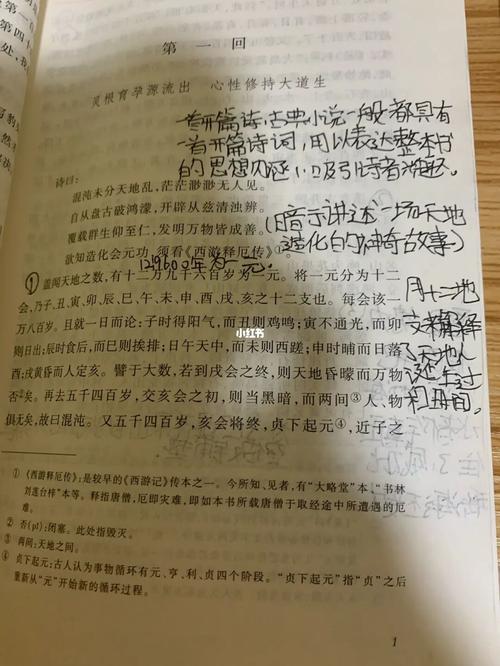 第一回
灵根育孕源流出 心性修持大道生
一首开篇诗,古典小说一般都具有
一首开篇诗词,用以表达整本书
的思想内涵,吸引读者
诗曰:
混沌未分天地乱,茫茫渺渺无人见。
自从盘古破鸿蒙,开辟从兹清浊辨。
覆载群生仰至仁,发明万物皆成善。
欲知造化会元功,须看《西游释厄传》①。
(暗示讲述一场天地
造化的神奇故事)
129600年为一元.
① 盖闻天地之数,有十二万九千六百岁为一元。将一元分为十二
会,乃子、丑、寅、卯、辰、巳、午、未、申、酉、戌、亥之十二支也。每会该一
万八百岁。且就一日而论:子时得阳气,而丑则鸡鸣;寅不通光,而卯
则日出;辰时食后,而巳则挨排;日午天中,而未则西蹉;申时晡而日落
酉;戌黄昏而人定亥。譬于大数,若到戌会之终,则天地昏曚而万物
否②矣。再去五千四百岁,交亥会之初,则当黑暗,而两间③人、物
俱无矣,故曰混沌。又五千四百岁,亥会将终,贞下起元④,近子之
用十二地
支来解释
了天地人
诞生过
和时间.
小红书
① 《西游释厄传》:是较早的《西游记》传本之一。今所知、见者,有“大略堂”本、“书林
刘莲台梓”本等。释指唐僧,厄即灾难,即如本书所载唐僧于取经途中所遭遇的厄
难。
② 否(pǐ):闭塞。此处指毁灭。
③ 两间:天地之间。
④ 贞下起元:古人认为事物循环有元、亨、利、贞四个阶段。“贞下起元”指“贞”之后
重新从“元”开始新的循环过程。
1